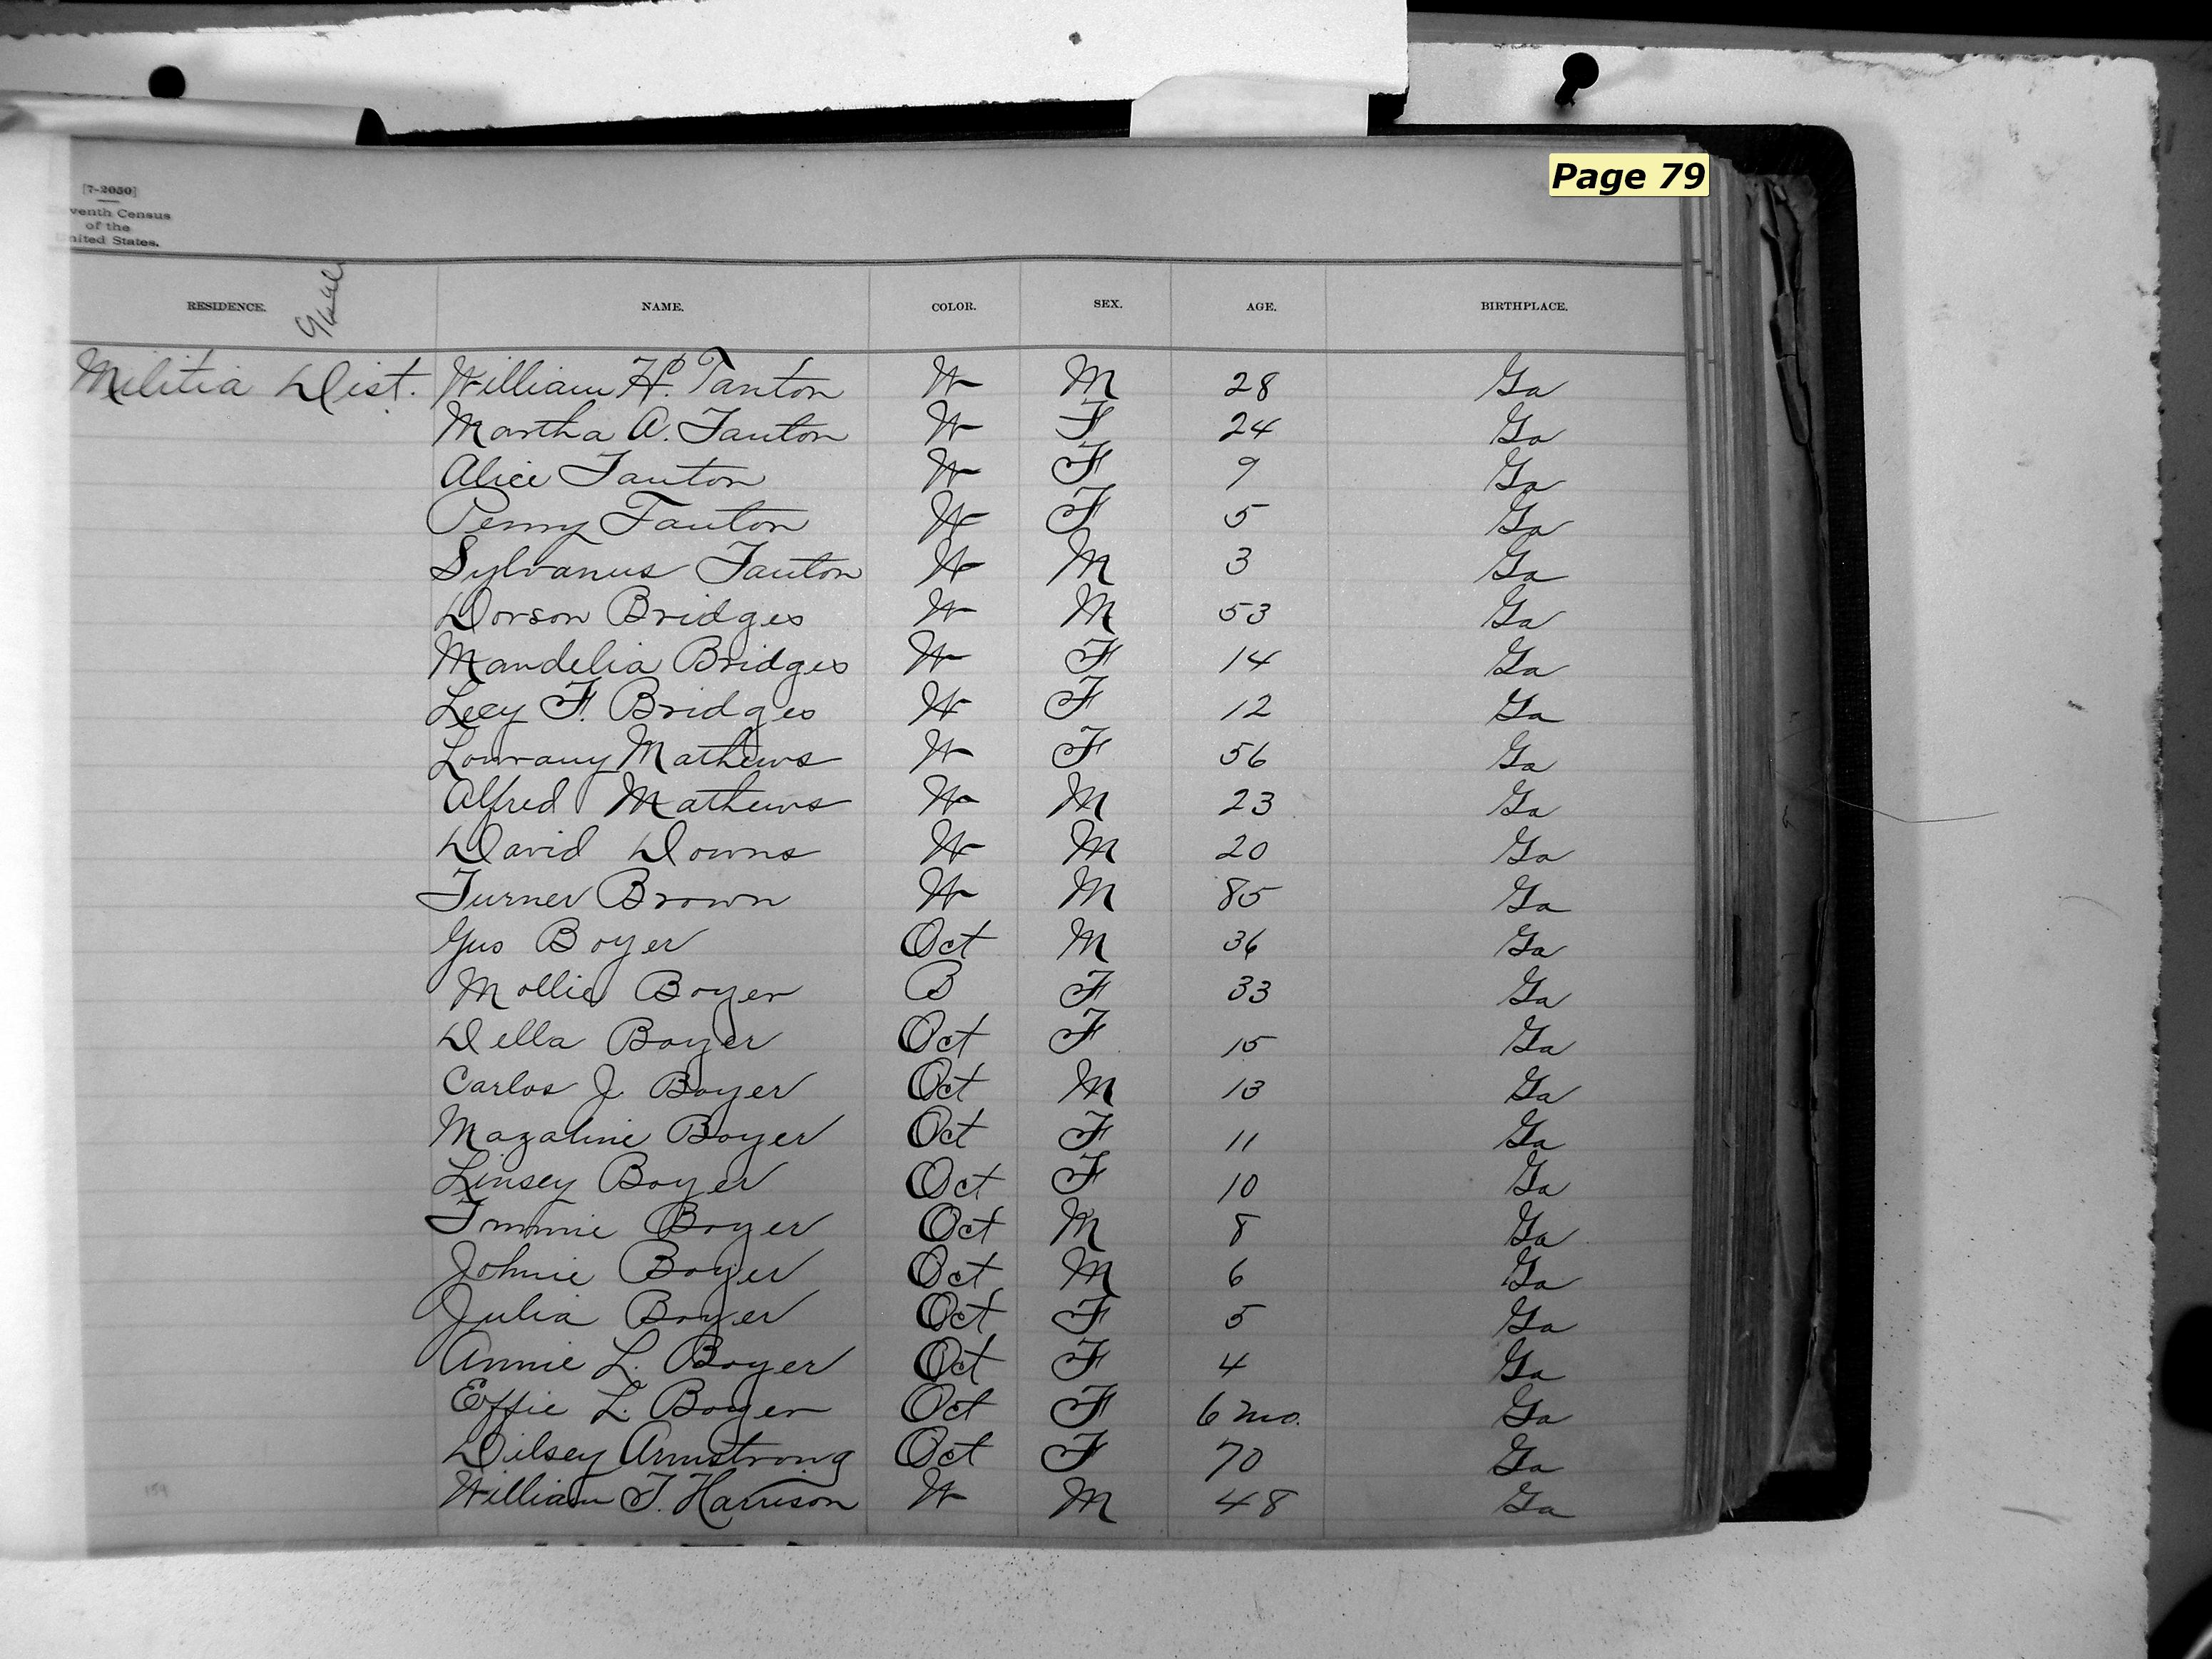 Page 79
[7-2050]
venth Census
of the
nited States.
RESIDENCE. NAME. COLOR. SEX. AGE. BIRTHPLACE.
Militia Dist. William H. Tanton W M 28 Ga
Martha A. Tanton W F 24 Ga
Alice Tanton W F 9 Ga
Penny Tanton W F 5 Ga
Sylvanus Tanton W M 3 Ga
Dorson Bridges W M 53 Ga
Mandelia Bridges W F 14 Ga
Lecy F. Bridges W F 12 Ga
Lourany Mathews W F 56 Ga
Alfred Mathews W M 23 Ga
David Downs W M 20 Ga
Turner Brown W M 85 Ga
Gus Boyer Oct M 36 Ga
Mollie Boyer B F 33 Ga
Della Boyer Oct F 15 Ga
Carlos J. Boyer Oct M 13 Ga
Mazaline Boyer Oct F 11 Ga
Linsey Boyer Oct F 10 Ga
Immie Boyer Oct M 8 Ga
Johnie Boyer Oct M 6 Ga
Julia Boyer Oct F 5 Ga
Annie L. Boyer Oct F 4 Ga
Effie L. Boyer Oct F 6 mo. Ga
Dilsey Armstrong Oct F 70 Ga
William T. Harrison W M 48 Ga